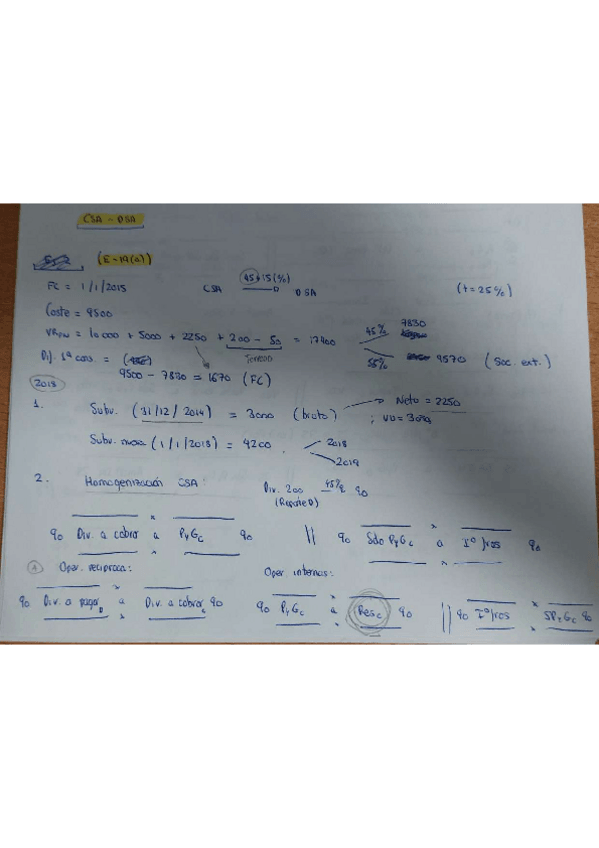 CSA - DSA
(E-19(a))
FC = 1/1/2015 CSA 45+15(%) DSA (t=25%)
Coste = 9500
= 10000 + 5000 + 2250 + 200 - 50 = 17400 45% 7830
55% 9570 (Soc. ext.)
Dif. 1ª cons. = Terreno
9500 - 7830 = 1670 (FC)
2018
1. Subv. (31/12/2014) = 3000 (bruto) Neto = 2250
; VU =
Subv. nueva (1/1/2018) = 4200 2018
2019
2. Homogenización CSA: Div. 200 45% 90
(Reparte D)
90 Div. a cobrar a PyGc 90 || 90 Sdo PyGc a Iº/ros 90
Oper. recíproca: Oper. internas:
90 Div. a pagar D a Div. a cobrar c 90 90 PyGc a Resc 90 || 90 Iº/ros a SPyGc 90